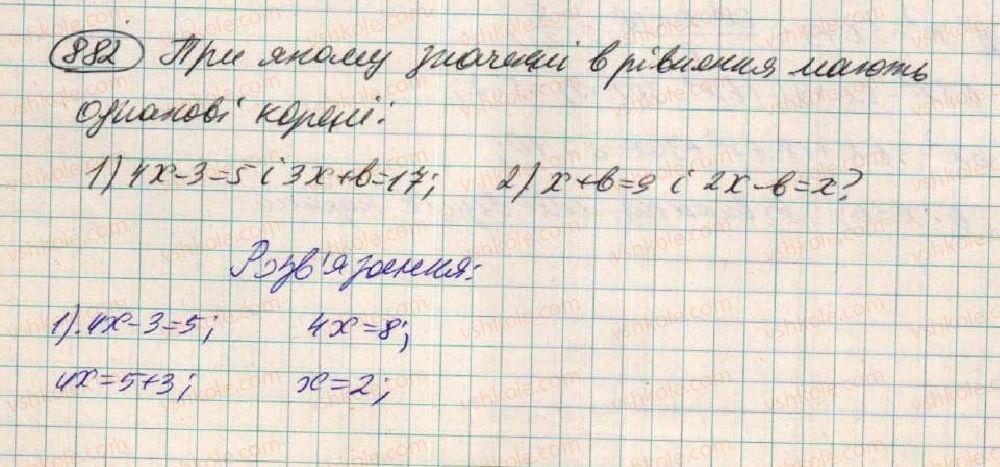 882 При якому значенні в рівняння мають
однакові корені:
1) 4x-3=5 і 3x+в=17; 2) x+в=9 і 2x-в=x?
Розв'язання:
1). 4x-3=5; 4x=8;
4x=5+3; x=2;